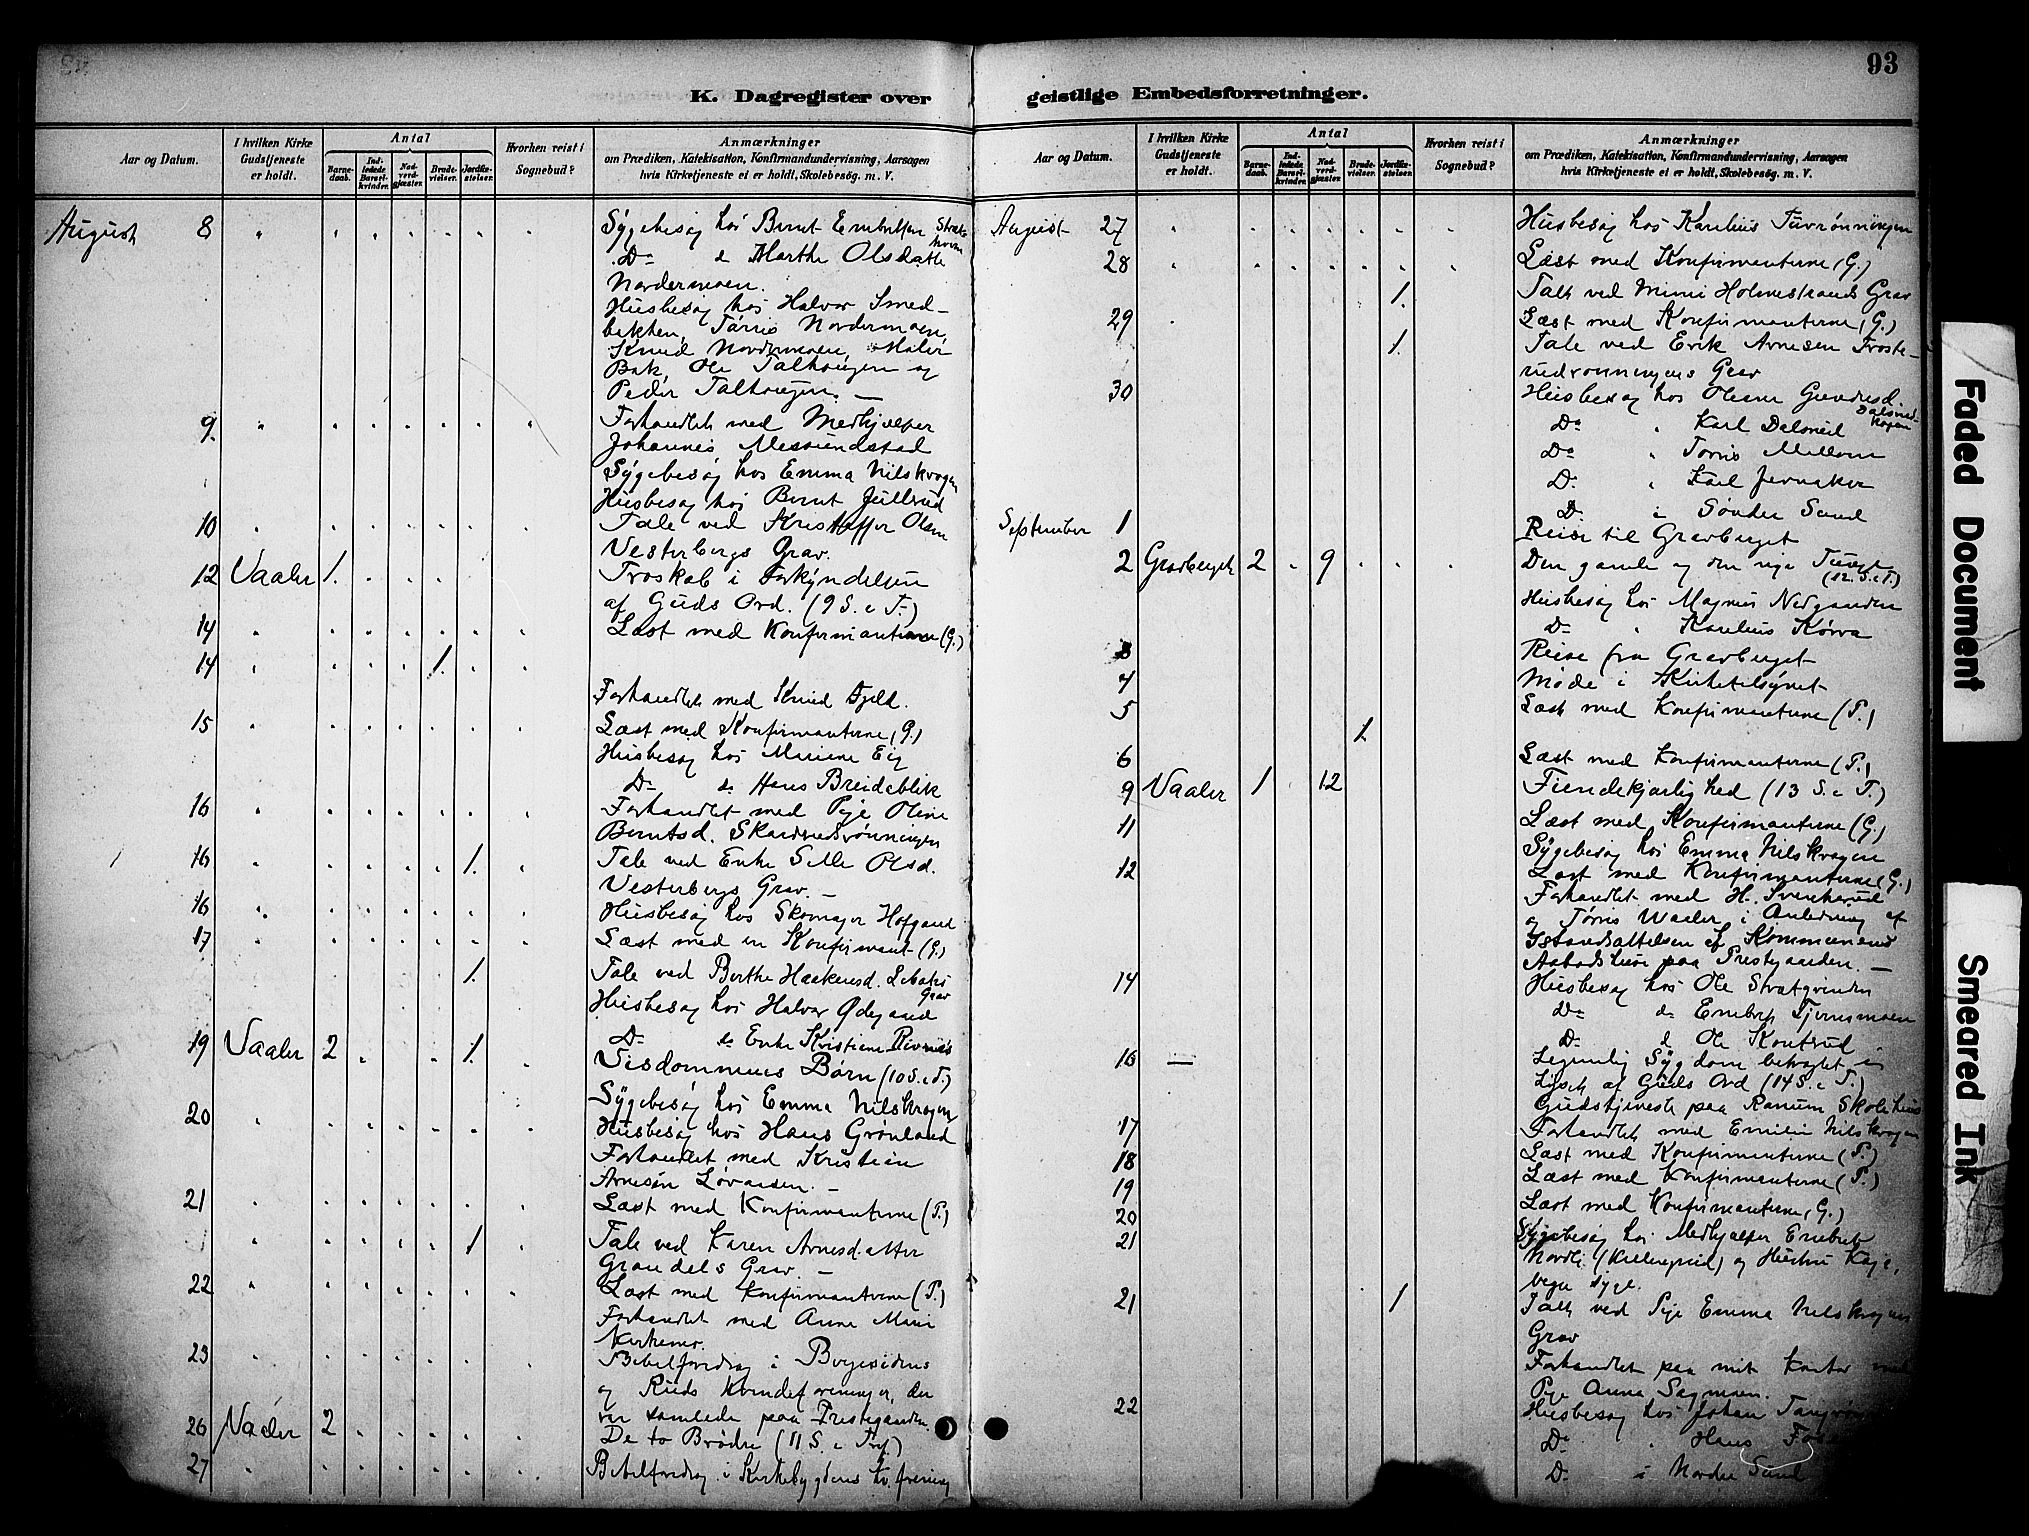 93
K. Dagregister over geistlige Embedsforretninger.
Aar og Datum.
I hvilken Kirke Gudstjeneste er holdt.
Antal
Barnedaab.
Indledede Barselkvinder.
Nadverdgjæster.
Brudevielser.
Jordfæstelser.
Hvorhen reist i Sognebud?
Anmærkninger
om Prædiken, Katekisation, Konfirmandundervisning, Aarsagen
hvis Kirketjeneste ei er holdt, Skolebesøg. m. V.
August 8 Sygebesøg hos Bernt Embretsen
Do do Marthe Olsdatter
Nordermoen.
Husbesøg hos Halvor Smed-
bekken, Tørris Nordermoen,
Knud Nordermoen, Maler
Bak, Ole Talhaugen og
Peder Talhaugen. —
9. Forhandlet med Medhjælper
Johannes Messundstad
Sygebesøg hos Emma Nilskrogen
Husbesøg hos Bernt Jullsrud
10 Tale ved Kristoffer Olsen
Vesterbergs Grav.
12 Vaaler 1. Troskab i Forkyndelsen
af Guds Ord. (9 S. e T.)
14 Læst med Konfirmanterne (G.)
14 1.
Forhandlet med Knud
15 Læst med Konfirmanterne, G.)
Husbesøg hos Mariene Eig
Do do Hans Breidablik
16 Forhandlet med Pige Oline
Berntsd. Skardrudsrønningen
16 1. Tale ved Enke Sille Olsd.
Vesterbergs Grav. —
16 Husbesøg hos Skomager Hofgaard
17 Læst med en Konfirmant (G.)
1. Tale ved Berthe Haakensd.
Grav
Husbesøg hos Halvor Ødegaard
Do do Enke Kristiane
19 Vaaler 2 1. Visdommens Børn (10 S. e T.)
Sygebesøg hos Emma Nilskrogen
20 Husbesøg hos Hans Grønland
Forhandlet med Kristian
Arnesøn Løvaasen. —
21 Læst med Konfirmanterne (P.)
1 Tale ved Karen Arnesdatter
Grandels Grav. —
22 Læst med Konfirmanterne (P.)
Forhandlet med Anna Marie
23 Bibelforedrag i
og Ruds Kvindeforeninger, der
var samlede paa Prestegaarden.
26 Vaaler 2 De to Brødre (11 S. e Tref.)
27 Bibelforedrag i Kirkebygdens Kv.forening
Aar og Datum.
I hvilken Kirke Gudstjeneste er holdt.
Antal
Barnedaab.
Indledede Barselkvinder.
Nadverdgjæster.
Brudevielser.
Jordfæstelser.
Hvorhen reist i Sognebud?
Anmærkninger
om Prædiken, Katekisation, Konfirmandundervisning, Aarsagen
hvis Kirketjeneste ei er holdt, Skolebesøg. m. V.
August 27 Husbesøg hos Karelius
28 Læst med Konfirmanterne (G.)
1. Tale ved Mimi Holmestrands Grav
29 Læst med Konfirmanterne, G.)
1. Tale ved Erik Arnesen Froste-
rudrønningens Grav
30 Husbesøg hos Oliane Gundersd.
Do " Karl Dalsveid
Do " Tørris Mellom
Do " Karl Jernaker
Do i Søndre Sand
September 1 Reise til Gravberget
2 Gravberget 2 9 Den gamle og den nye
(12. S. e T.)
Husbesøg hos Magnus Nedgaarden
Do " Karelius
3 Reise fra Gravberget
4 Møde i Kirketilsynet
5 Læst med Konfirmanterne (P.)
1
6 Læst med Konfirmanterne (P.)
9 Vaaler 1 12 Fiendekjærlighed (13 S. e T.)
11 Læst med Konfirmanterne (G.)
Sygebesøg hos Emma Nilskrogen
12 Læst med Konfirmanterne (G.)
Forhandlet med H. Svenkerud
og Tørris Vaaler i Anledning af
Istandsættelsen af Kommunens
paa Prestgaarden. —
14 Husbesøg hos Ole
Do do Embret Tjernsmoen
Do do Ole Kontrud
16 — Legemlig Sygdom betragtet i
Lyset af Guds Ord (14 S. e T.)
Gudstjeneste paa Ranum Skolehus
17 Forhandlet med Emilie Nilskrogen
18 Læst med Konfirmanterne (P.)
19 Læst med Konfirmanterne (P.)
20 Læst med Konfirmanterne, G.)
21 Sygebesøg hos Medhjælper Embret
Nordli og Hustru Kaja,
begge syge.
21 1 Tale ved Pige Emma Nilskrogens
Grav
Forhandlet paa mit Kontor med
Pige Anna Sagmoen.
22 Husbesøg hos Johan
Do " Hans
Do i Nordre Sand
Faded Document
Smeared Ink